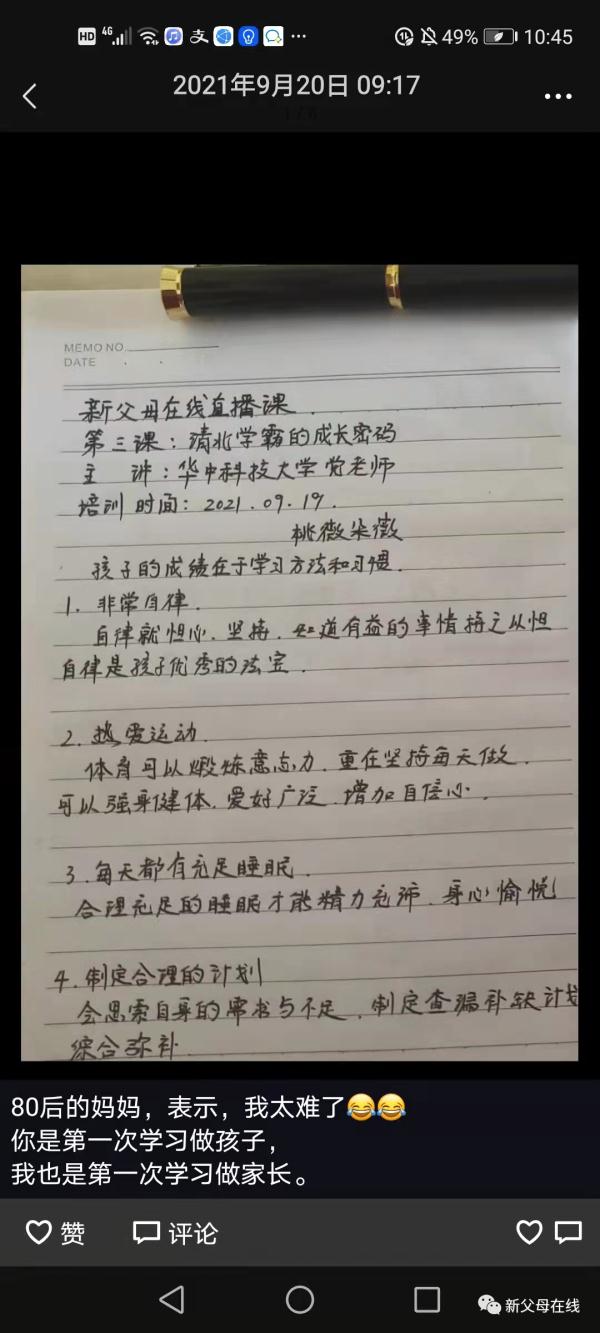 HD 4G 49% 10:45
2021年9月20日 09:17
MEMO NO.
DATE
新父母在线直播课.
第三课：清北学霸的成长密码
主 讲：华中科技大学 党老师
培训时间：2021.09.19.
桃薇朵薇
孩子的成绩在于学习方法和习惯.
1. 非常自律.
自律就恒心.坚持.知道有益的事情持之从恒
自律是孩子优秀的法宝.
2. 热爱运动.
体育可以煅炼意志力.重在坚持每天做.
可以强身健体.爱好广泛.增加自信心.
3. 每天都有充足睡眠.
合理充足的睡眠才能精力充沛.身心愉悦
4. 制定合理的计划
会思索自身的需求与不足.制定查漏补缺计划
综合弥补.
80后的妈妈，表示，我太难了😂😂
你是第一次学习做孩子，
我也是第一次学习做家长。
赞 评论
新父母在线